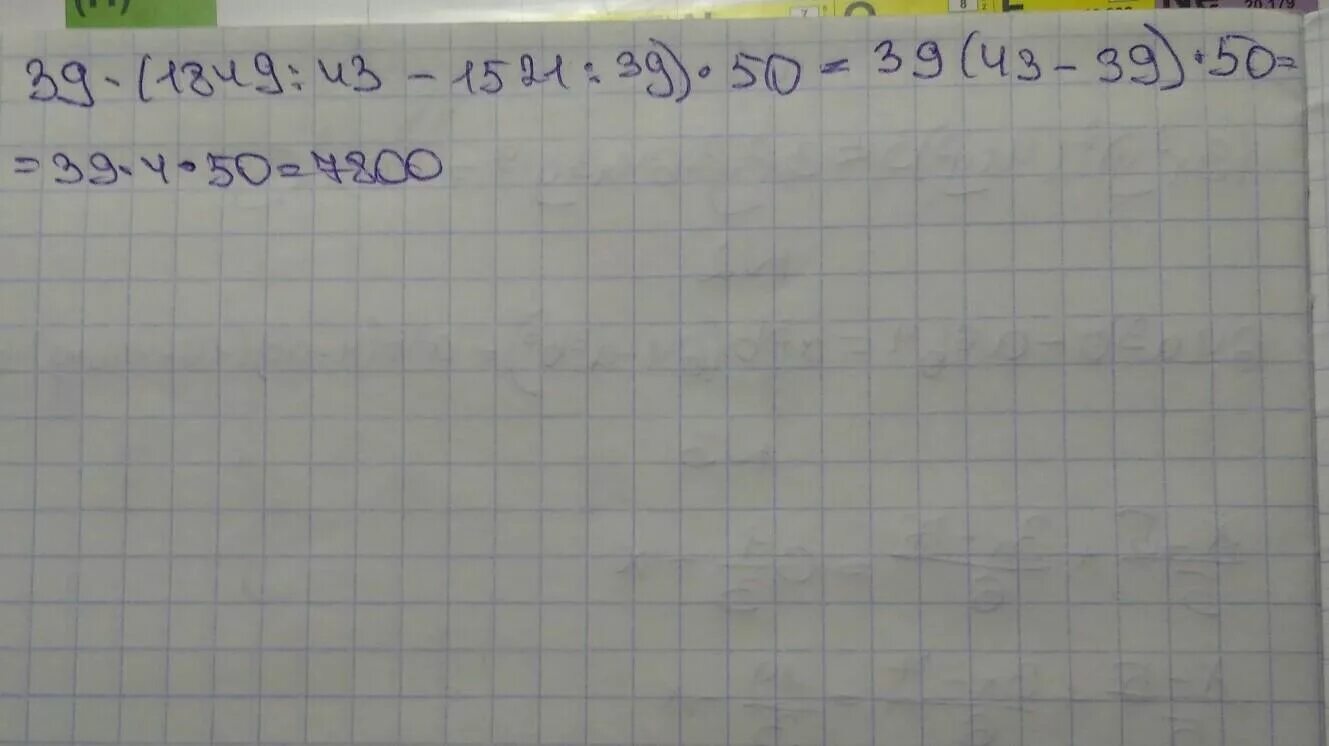 39 · (1849 : 43 - 1521 : 39) · 50 = 39 (43 - 39) · 50 =
= 39 · 4 · 50 = 7800